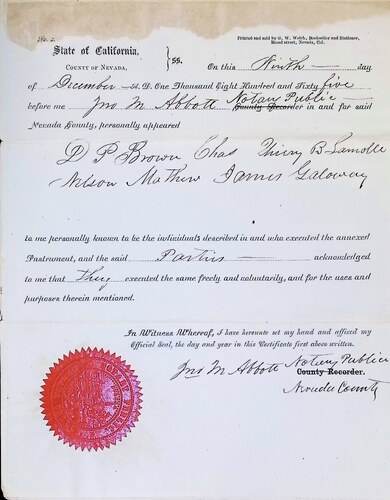 No. 2.
Printed and sold by G. W. Welch, Bookseller and Stationer,
Broad street, Nevada, Cal.
State of California,
COUNTY OF NEVADA, } ss.
On this Ninth day
of December A. D. One Thousand Eight Hundred and Sixty five
before me Jno M Abbott Notary Public County Recorder in and for said
Nevada County, personally appeared
D P Brown Chas Thiery B Lamolle
Nelson Mathew James Galoway
to me personally known to be the individuals described in and who executed the annexed
Instrument, and the said Parties acknowledged
to me that They executed the same freely and voluntarily, and for the uses and
purposes therein mentioned.
In Witness Whereof, I have hereunto set my hand and affixed my
Official Seal, the day and year in this Certificate first above written.
Jno M Abbott Notary Public
County Recorder.
Nevada County